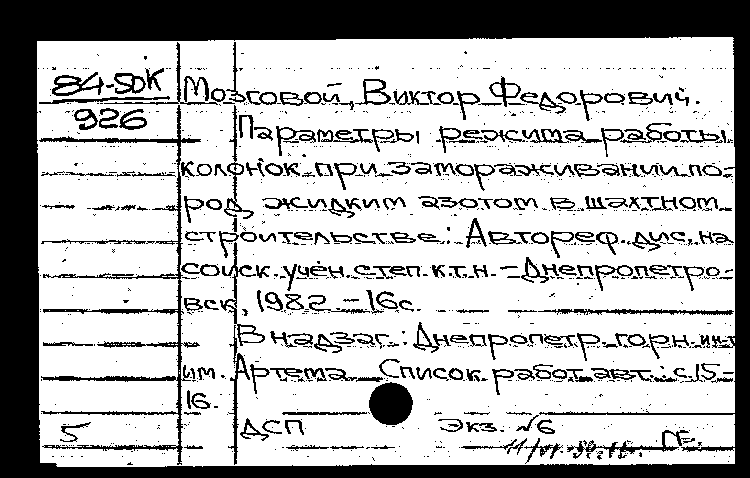 84-5ДК
926
Мозговой, Виктор Федорович.
Параметры режима работы
колонок при замораживании по-
род жидким азотом в шахтном
строительстве: Автореф. дис. на
соиск. учен. степ. к.т.н. - Днепропетро-
вск, 1982. - 16с.
В надзаг.: Днепропетр. горн. ин-т
им. Артема. Список работ авт.: с.15-
16.
5 ДСП Экз. №6
ГЕ.